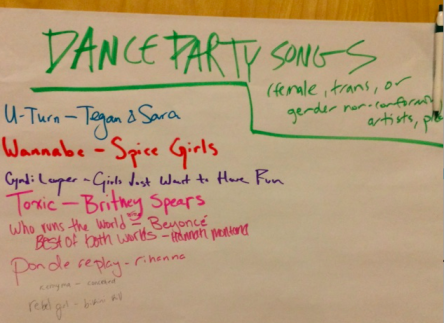 DANCE PARTY SONGS
(female, trans, or
gender non-conforming
artists,
U-Turn – Tegan & Sara
Wannabe – Spice Girls
Cyndi Lauper – Girls Just Want to Have Fun
Toxic – Britney Spears
Who runs the world – Beyoncé
Best of both worlds – Hannah Montana
Pon de replay – rihanna
rebel girl –